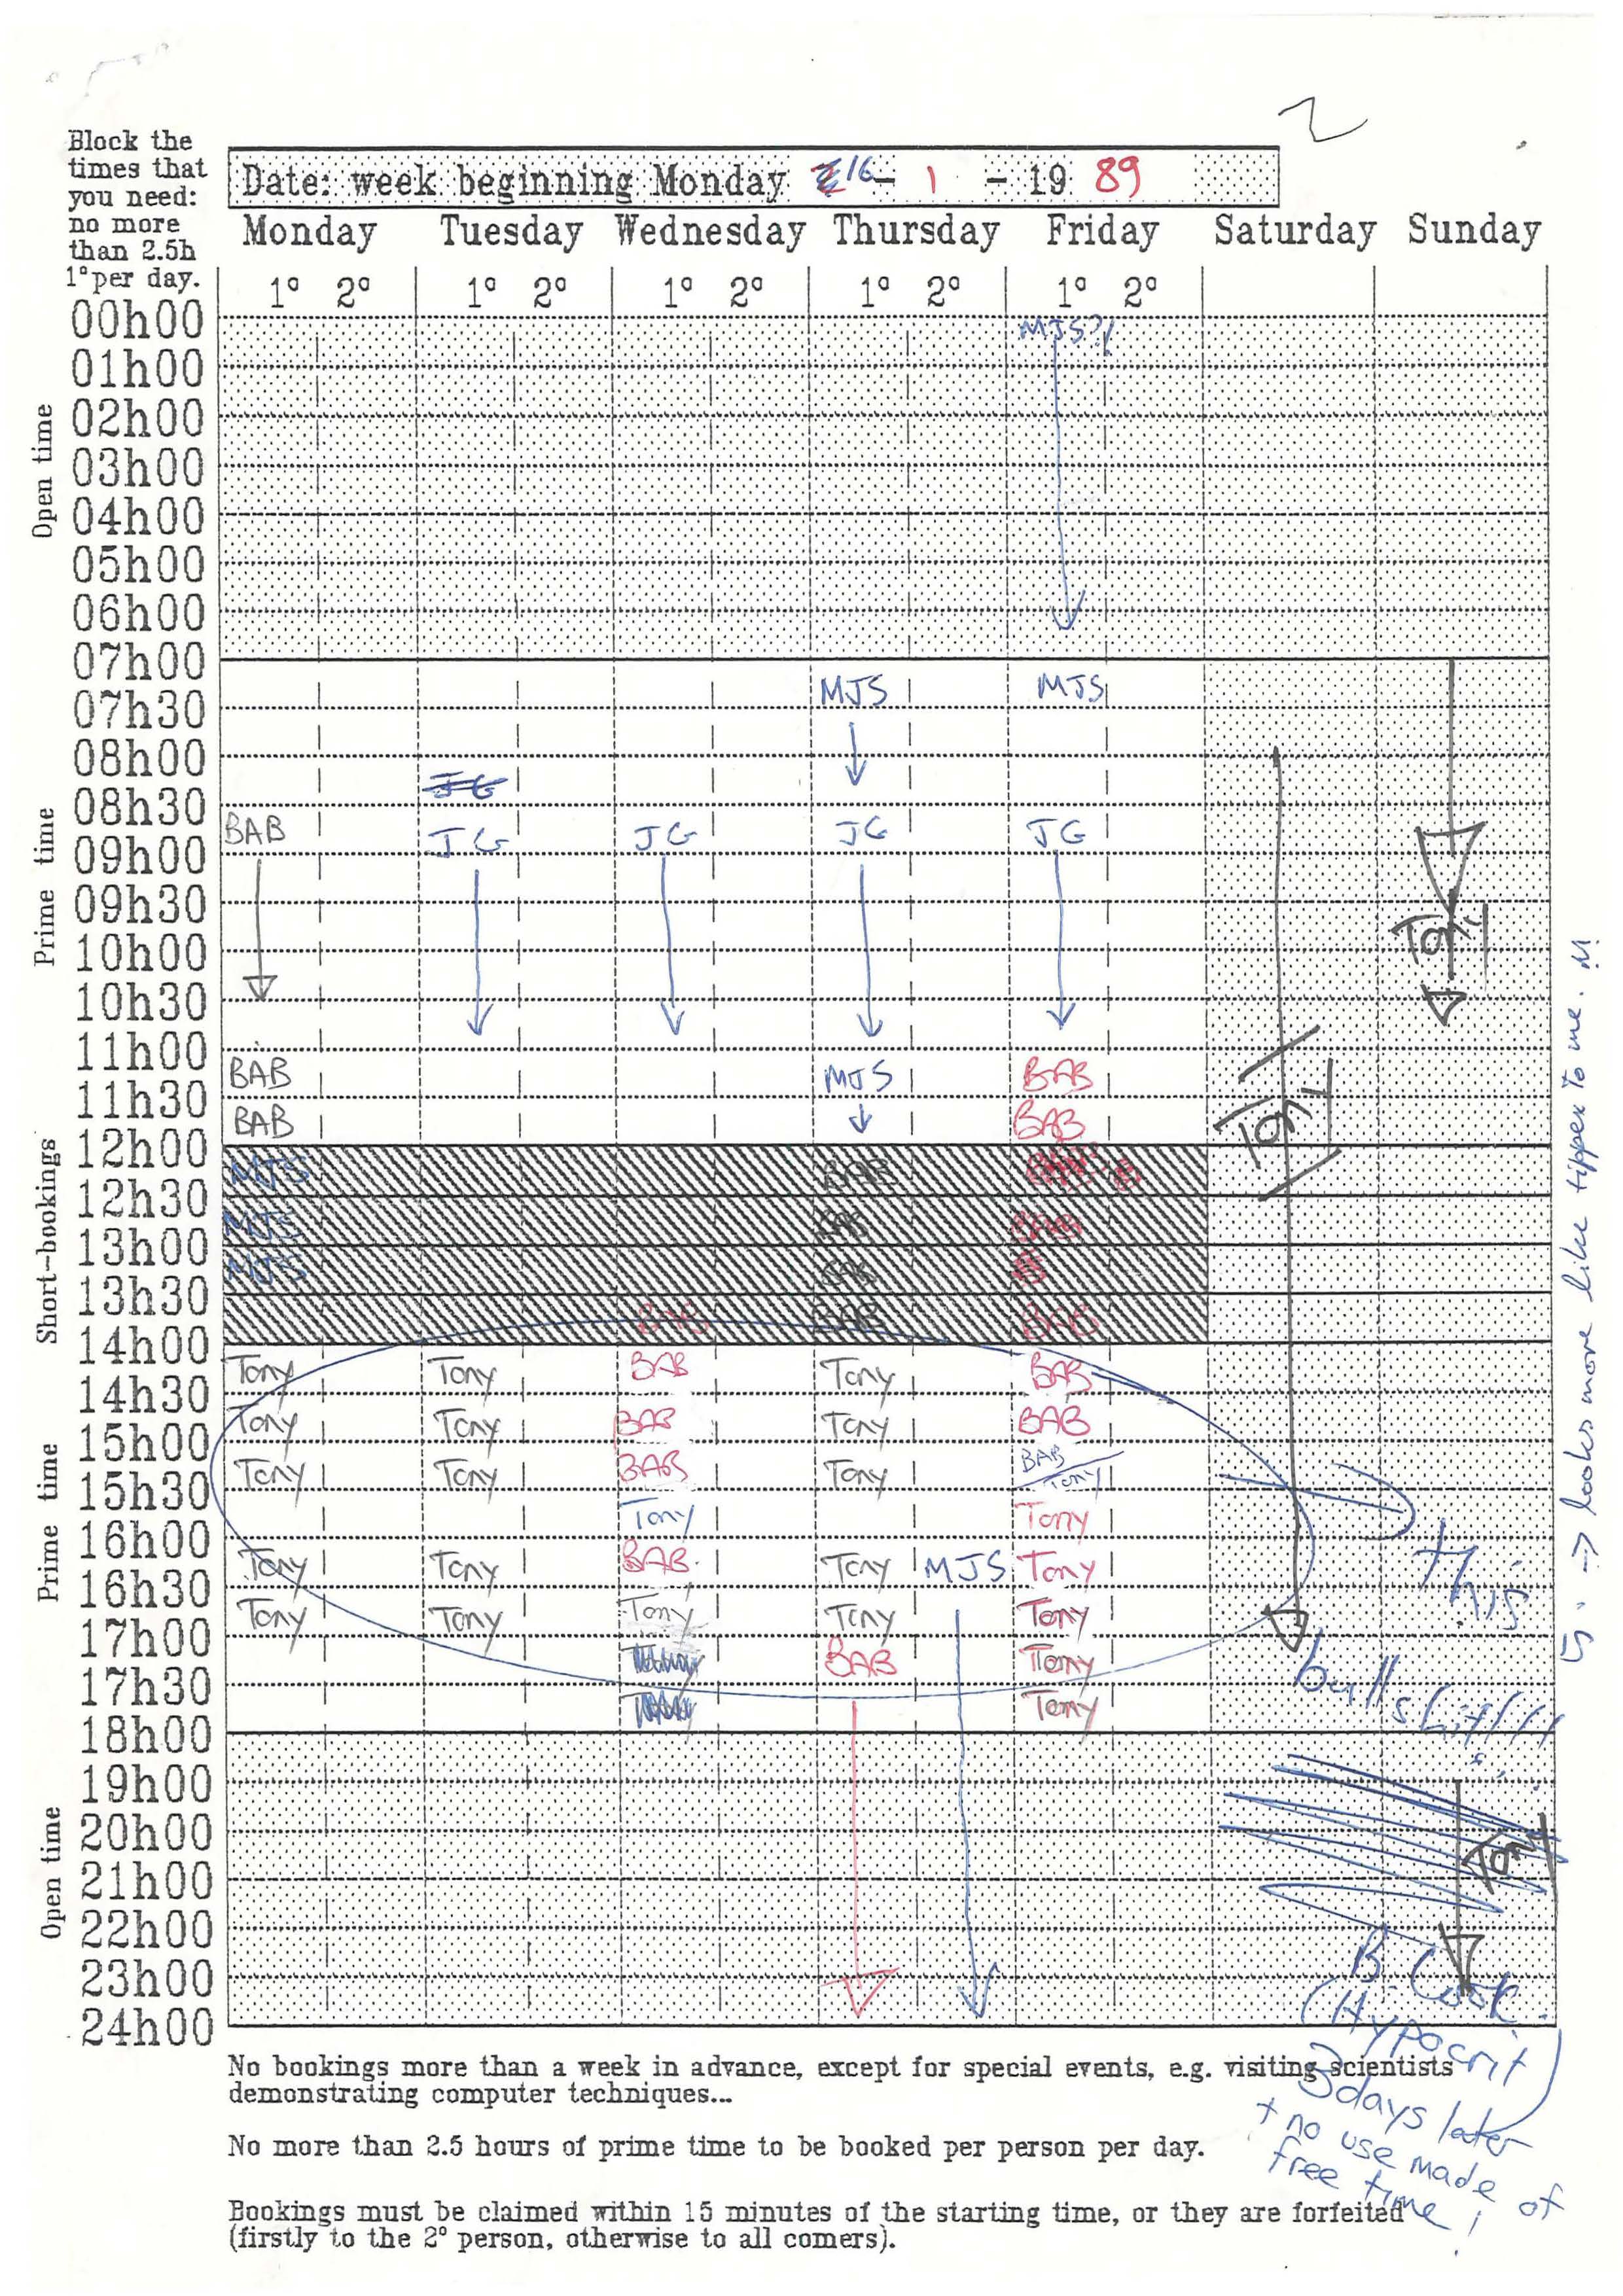 Block the
times that
you need:
no more
than 2.5h
1º per day.
Date: week beginning Monday 16 - 1 - 19 89
Monday Tuesday Wednesday Thursday Friday Saturday Sunday
1º 2º 1º 2º 1º 2º 1º 2º 1º 2º
Open time
00h00 MJS?!
01h00
02h00
03h00
04h00
05h00
06h00
07h00
Prime time
MJS MJS
07h30
08h00
JG
08h30
BAB JG JG JG JG
09h00
09h30
Tony
10h00
10h30
11h00
BAB MJS BAB
11h30
BAB BAB Tony
Short-bookings
12h00
MJS BAB
12h30
MJS BAB BAB
13h00
MJS BAB
13h30
BAB BAB BAB
14h00
Prime time
Tony Tony BAB Tony BAB
14h30
Tony Tony BAB Tony BAB
15h00
Tony Tony BAB Tony BAB Tony
15h30
Tony Tony
16h00
Tony Tony BAB Tony MJS Tony
16h30
Tony Tony Tony Tony Tony
17h00
BAB Tony
17h30
Tony
18h00
Open time
19h00
20h00
Tony
21h00
22h00
23h00
24h00
this
bullshit!!!
B. Cook
(Hypocrit)
3days later
+ no use made of
free time!
looks more like tippex to me. M
No bookings more than a week in advance, except for special events, e.g. visiting scientists
demonstrating computer techniques...
No more than 2.5 hours of prime time to be booked per person per day.
Bookings must be claimed within 15 minutes of the starting time, or they are forfeited
(firstly to the 2º person, otherwise to all comers).